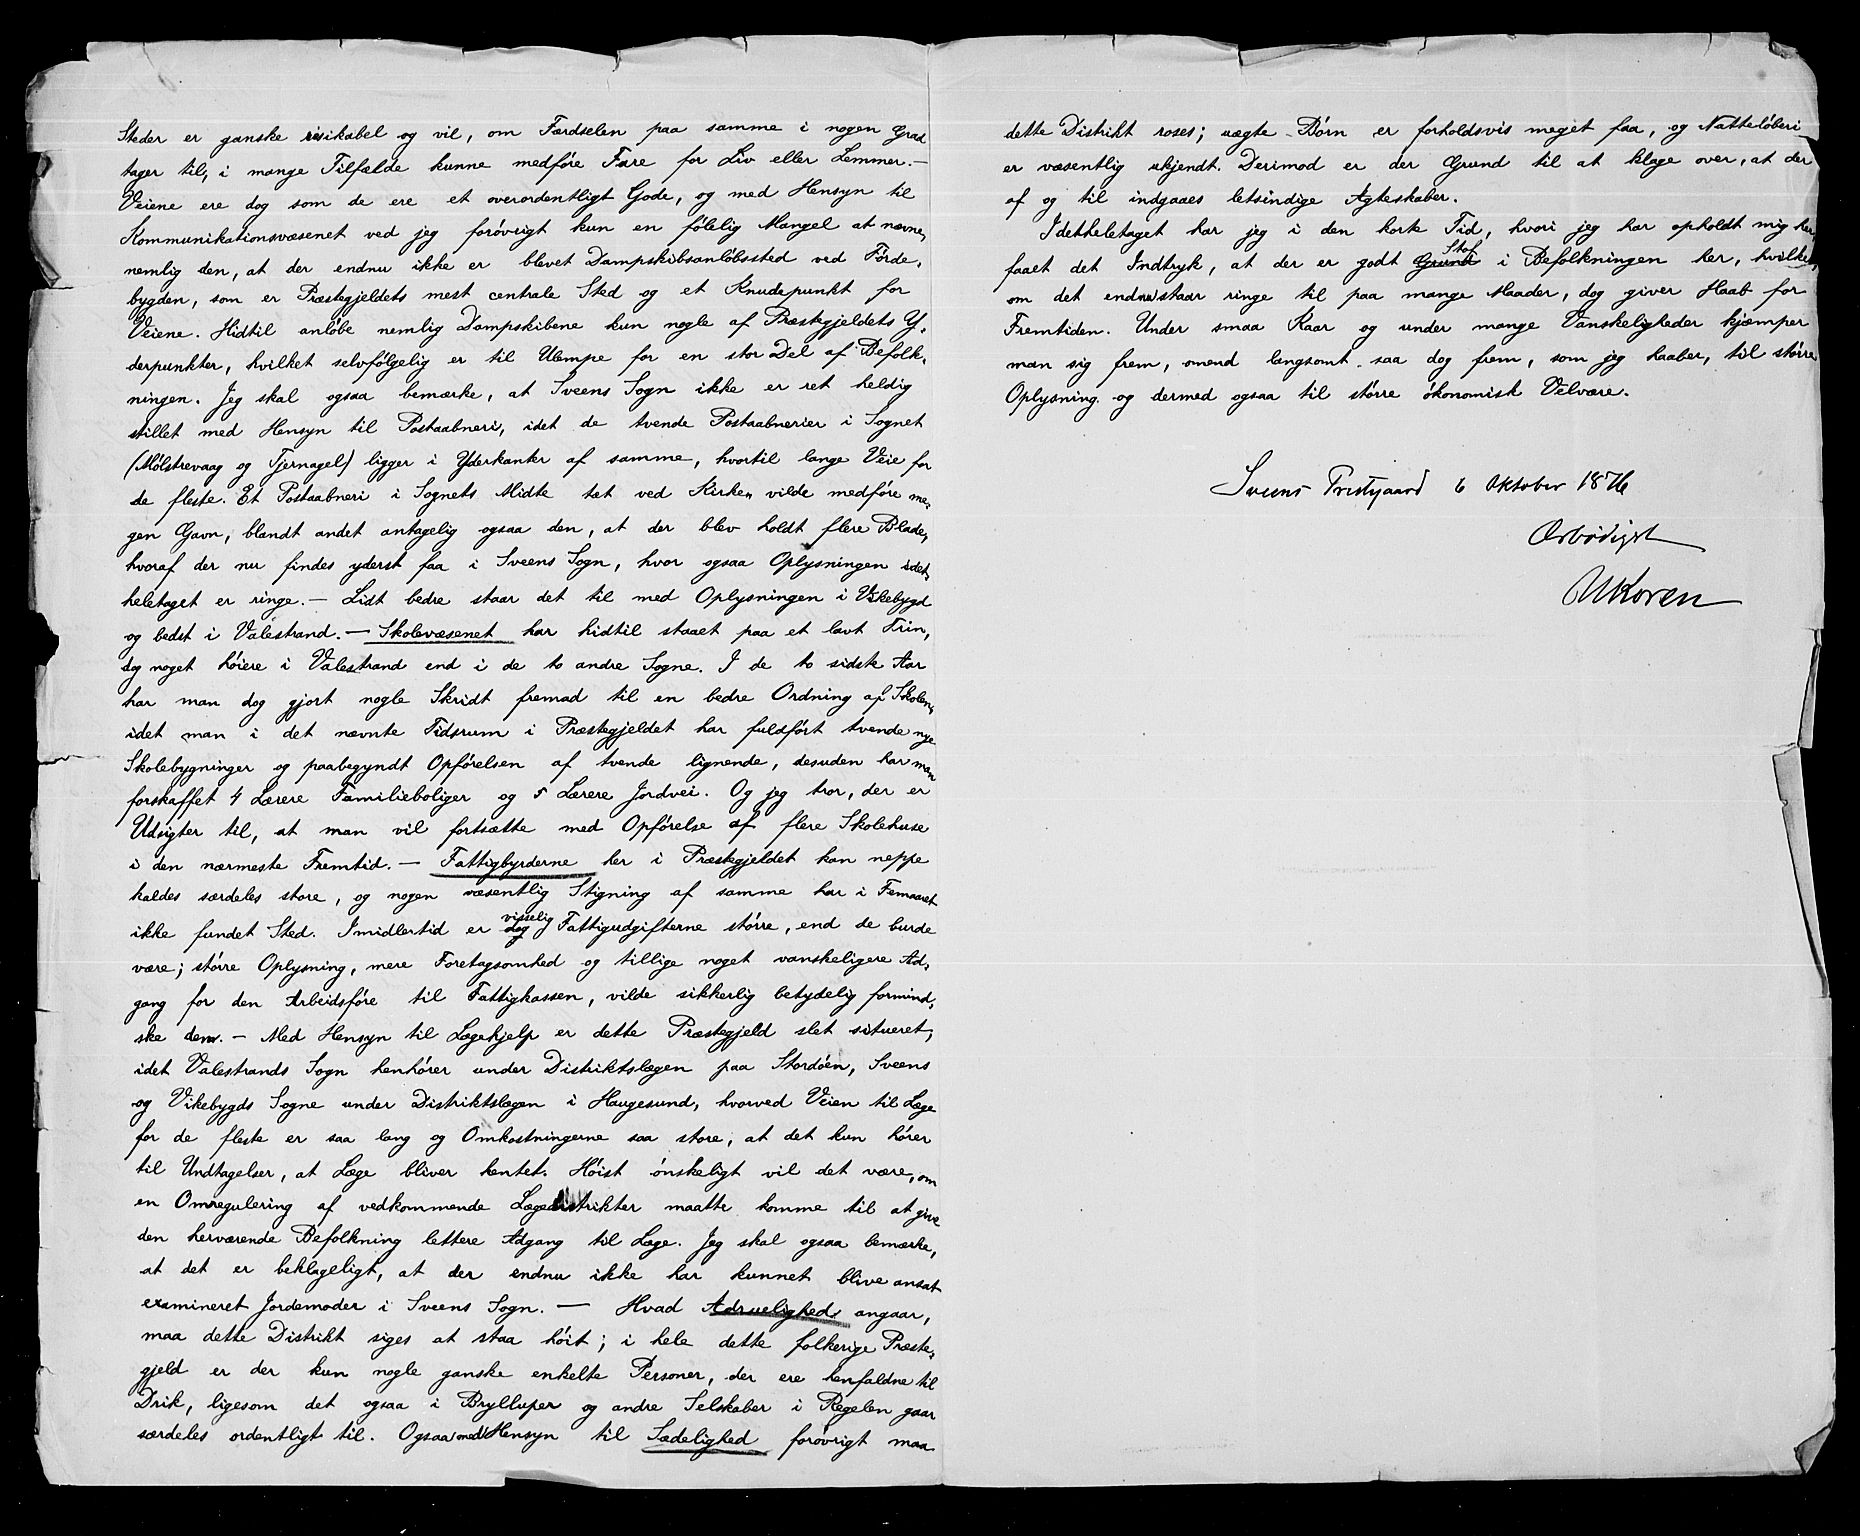 Steder er ganske risikabel og vil, om Færdselen paa samme i nogen Grad
tager til, i mange Tilfælde kunne medføre Fare for Liv eller Lemmer. —
Veiene ere dog som de ere et overordentligt Gode, og med Hensyn til
Kommunikationsvæsenet ved jeg forøvrigt kun en følelig Mangel at nævne,
nemlig den, at der endnu ikke er blevet Dampskibsanløbssted ved Førde,
bygden, som er Præstegjeldets mest centrale Sted og et Knudepunkt for
Veiene. Hidtil anløbe nemlig Dampskibene kun nogle af Præstegjeldets Y-
derpunkter, hvilket selvfølgelig er til Ulempe for en stor Del af Befolk-
ningen. Jeg skal ogsaa bemærke, at Sveens Sogn ikke er ret heldig
stillet med Hensyn til Postaabneri, idet de tvende Postaabnerier i Sognet
(Mølstrevaag og Tjernagel) ligger i Yderkanter af samme, hvortil lange Veie for
de fleste. Et Postaabneri i Sognets Midte tæt ved Kirken vilde medføre me-
gen Gavn, blandt andet antagelig ogsaa den, at der blev holdt flere Blade,
hvoraf der nu findes yderst faa i Sveens Sogn, hvor ogsaa Oplysningen idet-
heletaget er ringe. — Lidt bedre staar det til med Oplysningen i Vikebygd
og bedst i Valestrand. — Skolevæsenet har hidtil staaet paa et lavt Trin,
dog noget høiere i Valestrand end i de to andre Sogne. I de to sidste Aar
har man dog gjort nogle Skridt fremad til en bedre Ordning af Skolen,
idet man i det nævnte Tidsrum i Præstegjeldet har fuldført tvende nye
Skolebygninger og paabegyndt Opførelsen af tvende lignende, desuden har man
forskaffet 4 Lærere Familieboliger og 5 Lærere Jordvei. Og jeg tror, der er
Udsigter til, at man vil fortsætte med Opførelse af flere Skolehuse
i den nærmeste Fremtid. — Fattigbyrderne her i Præstegjeldet kan neppe
kaldes særdeles store, og nogen væsentlig Stigning af samme har i Femaaret
ikke fundet Sted. Imidlertid er dog visselig Fattigudgifterne større, end de burde
være; større Oplysning, mere Foretagsomhed og tillige noget vanskeligere Ad-
gang for den Arbeidsføre til Fattigkassen, vilde sikkerlig betydelig formind-
ske dem. — Med Hensyn til Lægehjelp er dette Præstegjeld slet situeret,
idet Valestrands Sogn henhører under Distriktslægen paa Stordøen, Sveens
og Vikebygds Sogne under Distriktslægen i Haugesund, hvorved Veien til Læge
for de fleste er saa lang og Omkostningerne saa store, at det kun hører
til Undtagelser, at Læge bliver hentet. Høist ønskeligt vil det være, om
en Omregulering af vedkommende Lægedistrikter maatte komme til at give
den herværende Befolkning lettere Adgang til Læge. Jeg skal ogsaa bemærke,
at det er beklageligt, at der endnu ikke har kunnet blive ansat
examineret Jordemoder i Sveens Sogn. — Hvad Adruelighed angaar,
maa dette Distrikt siges at staa høit; i hele dette folkerige Præste-
gjeld er der kun nogle ganske enkelte Personer, der ere henfaldne til
Drik, ligesom det ogsaa i Brylluper og andre Selskaber i Regelen gaar
særdeles ordentligt til. Ogsaa med Hensyn til Sædelighed forøvrigt maa
dette Distrikt roses; uægte Børn er forholdsvis meget faa, og Natteløberi
er væsentlig ukjendt. Derimod er der Grund til at klage over, at der
af og til indgaaes letsindige Ægteskaber.
Idetheletaget har jeg i den korte Tid, hvori jeg har opholdt mig her
faaet det Indtryk, at der er godt Grund Stof i Befolkningen her, hvilket,
om det endnu staar ringe til paa mange Maader, dog giver Haab for
Fremtiden. Under smaa Kaar og under mange Vanskeligheder kjæmper
man sig frem, omend langsomt saa dog frem, som jeg haaber, til større
Oplysning og dermed ogsaa til større økonomisk Velvære.
Sveens Prestgaard 6 Oktober 1876
Ærbødigst
Koren